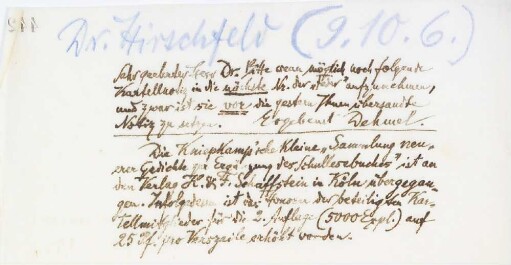 112
Dr. Hirschfeld (9.10.6.)
Sehr geehrter Herr Dr. Bitte wenn möglich noch folgende
Kartellnotiz in die nächste Nr. der „Feder" aufzunehmen,
und zwar ist sie vor die gestern Ihnen übersandte
Notiz zu setzen. Ergebenst Dehmel.
Die Kniepkamp'sche kleine „Sammlung neu-
erer Gedichte zur Ergänzung der Schullesebücher" ist an
den Verlag H. & F. Schaffstein in Köln übergegan-
gen. Infolgedessen ist das Honorar der beteiligten Kar-
tellmitglieder für die 2. Auflage (5000 Expl.) auf
25 Pf. pro Verszeile erhöht worden.